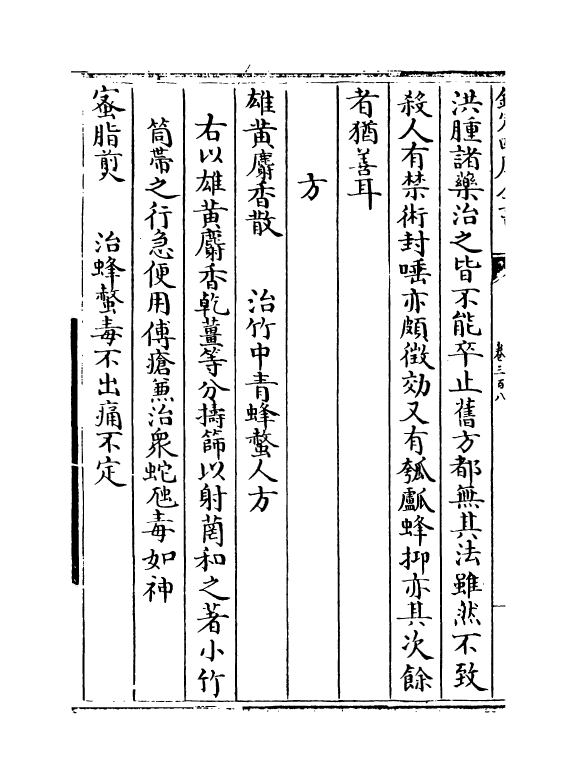 洪腫諸藥治之皆不能卒止舊方都無其法雖然不致
殺人有禁術封唾亦頗徴効又有瓠𤬛蜂抑亦其次餘
者猶善耳
方
雄黄麝香散　治竹中青蜂螫人方
右以雄黄麝香乾薑等分擣篩以射䓘和之著小竹
筒帶之行急便用傅瘡兼治衆蛇虺毒如神
蜜脂煎　治蜂螫毒不出痛不定
卷三百八